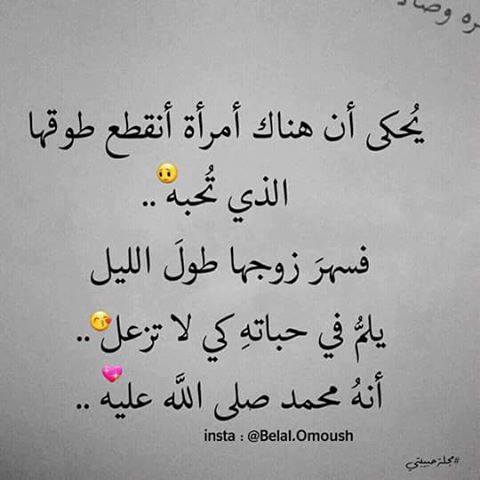 يُحكى أن هناك أمرأة أنقطع طوقها
الذي تُحبه ..
فسهرَ زوجها طولَ الليل
يلمُّ في حباتهِ كي لا تزعل ..
أنهُ محمد صلى اللَّه عليه ..
insta : @Belal.Omoush
#مجلة_حبيبتي